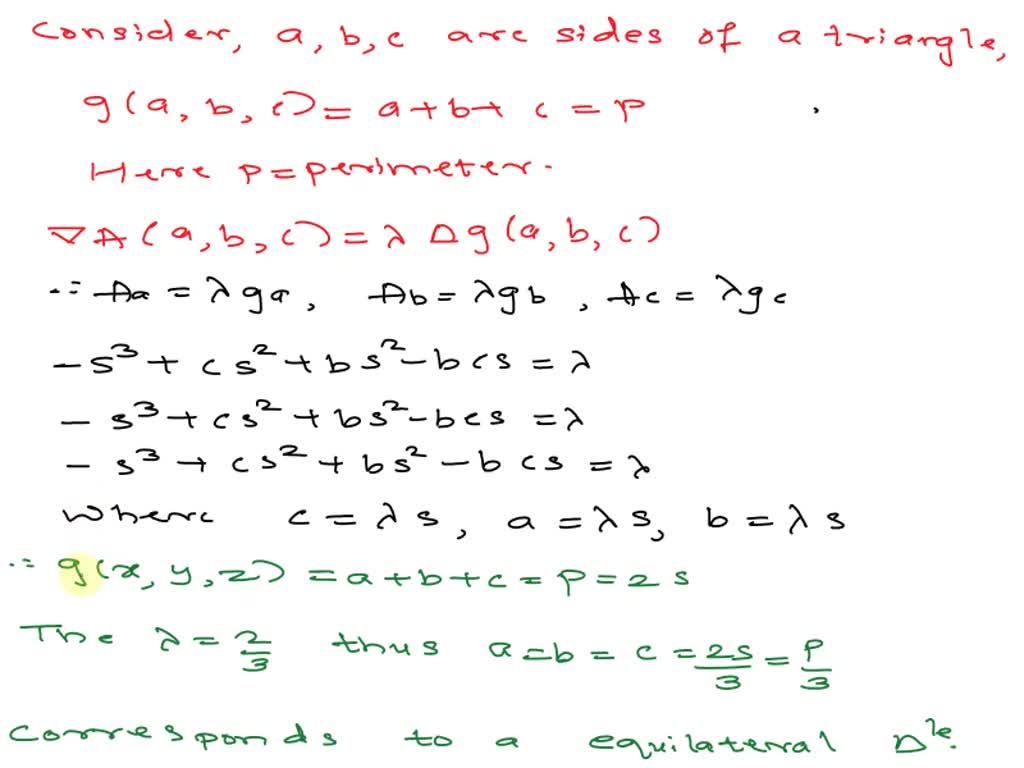 Consider, a, b, c are sides of a triangle,
g(a, b, c) = a + b + c = p
Here p = perimeter.
∇A(a, b, c) = λ Δg(a, b, c)
∴ Aa = λga, Ab = λgb, Ac = λgc
-s³ + cs² + bs² - bcs = λ
- s³ + cs² + bs² - bcs = λ
- s³ + cs² + bs² - bcs = λ
Where c = λs, a = λs, b = λs
∴ g(x, y, z) = a + b + c = p = 2s
The λ = 2/3 thus a = b = c = 2s/3 = p/3
corresponds to a equilateral Δle.